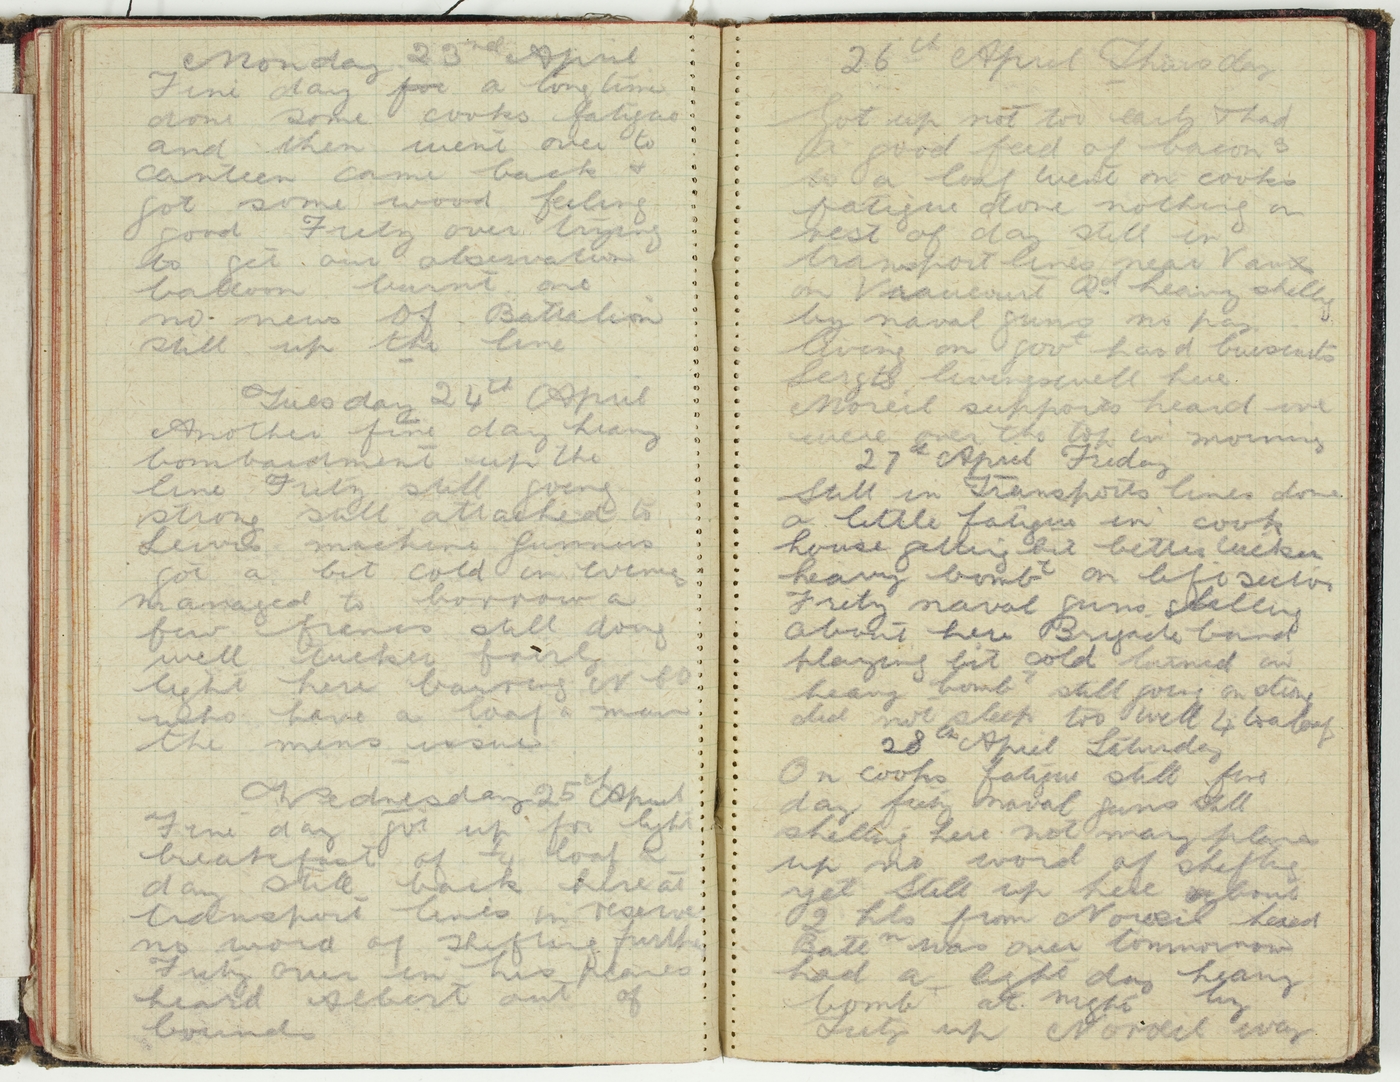 Monday 23nd April
Fine day for a long time
done some cooks fatigue
and then went over to
canteen came back &
got some wood feeling
good Fritz over trying
to get our observation
balloon burnt one
no news of Battalion
still up the line
Tuesday 24th April
Another fine day heavy
bombardment up the
line Fritz still going
strong still attached to
Lewis machine gunners
got a bit cold in evening
managed to borrow a
few francs still doing
well tucker fairly
light here barring N CO
who have a loaf a man
the mens issue
Wednesday 25th April
Fine day got up for light
breakfast of 1/4 loaf a
day still back here at
transport lines in reserve
no word of shefting further
Fritz over in his planes
heard Albert out of
bounds
26th April Thursday
Got up not too early & had
a good feed of bacon 3
to a loaf went on cooks
fatigue done nothing on
rest of day still in
transport lines near Vaux
on Vaucourt Rd heavy shelling
by naval guns no pay
living on govt hard buiscuits
Sergts living swell here
Moreil supports heard we
were over the top in morning
27th April Friday
Still in Transports lines done
a little fatigue in cook
house getting bit better tucker
heavy bombt on left sector
Fritz naval guns shelling
about here Brigade band
playing bit cold turned in
heavy bombt still going on strong
did not sleep too well 4 to a loaf
28th April Saturday
On cooks fatigue still fine
day fritz naval guns still
shelling here not many planes
up no word of shefting
yet Still up here about
2 kls from Noreil heard
Battn was over tommorrow
had a light day heavy
bombt at night by
Fritz up Noreil way